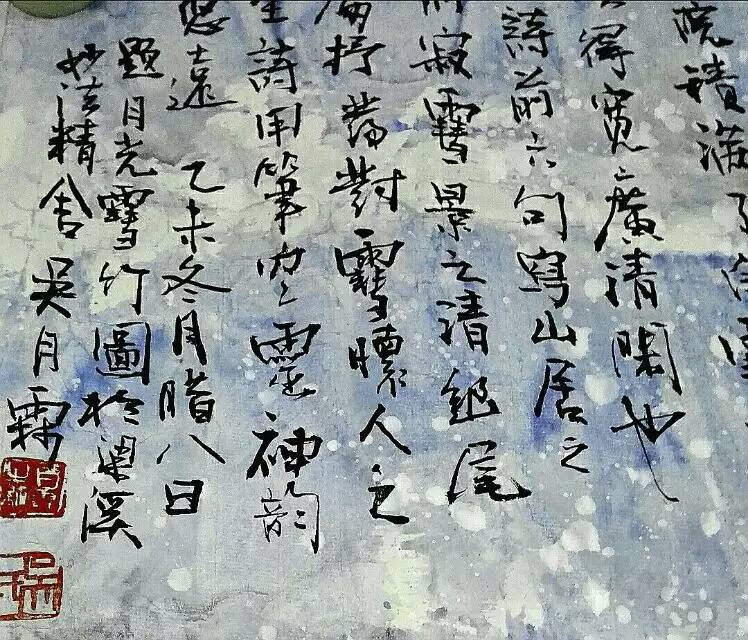 院積滿了白雪
得寬廣清闊也
詩前六句寫山居之
寂雪景之清絕尾
抒發對雪懷人之
詩用筆空靈神韻
悠遠 乙未冬月腊八日
題月光雪竹圖於梁溪
妙法精舍吳月霖